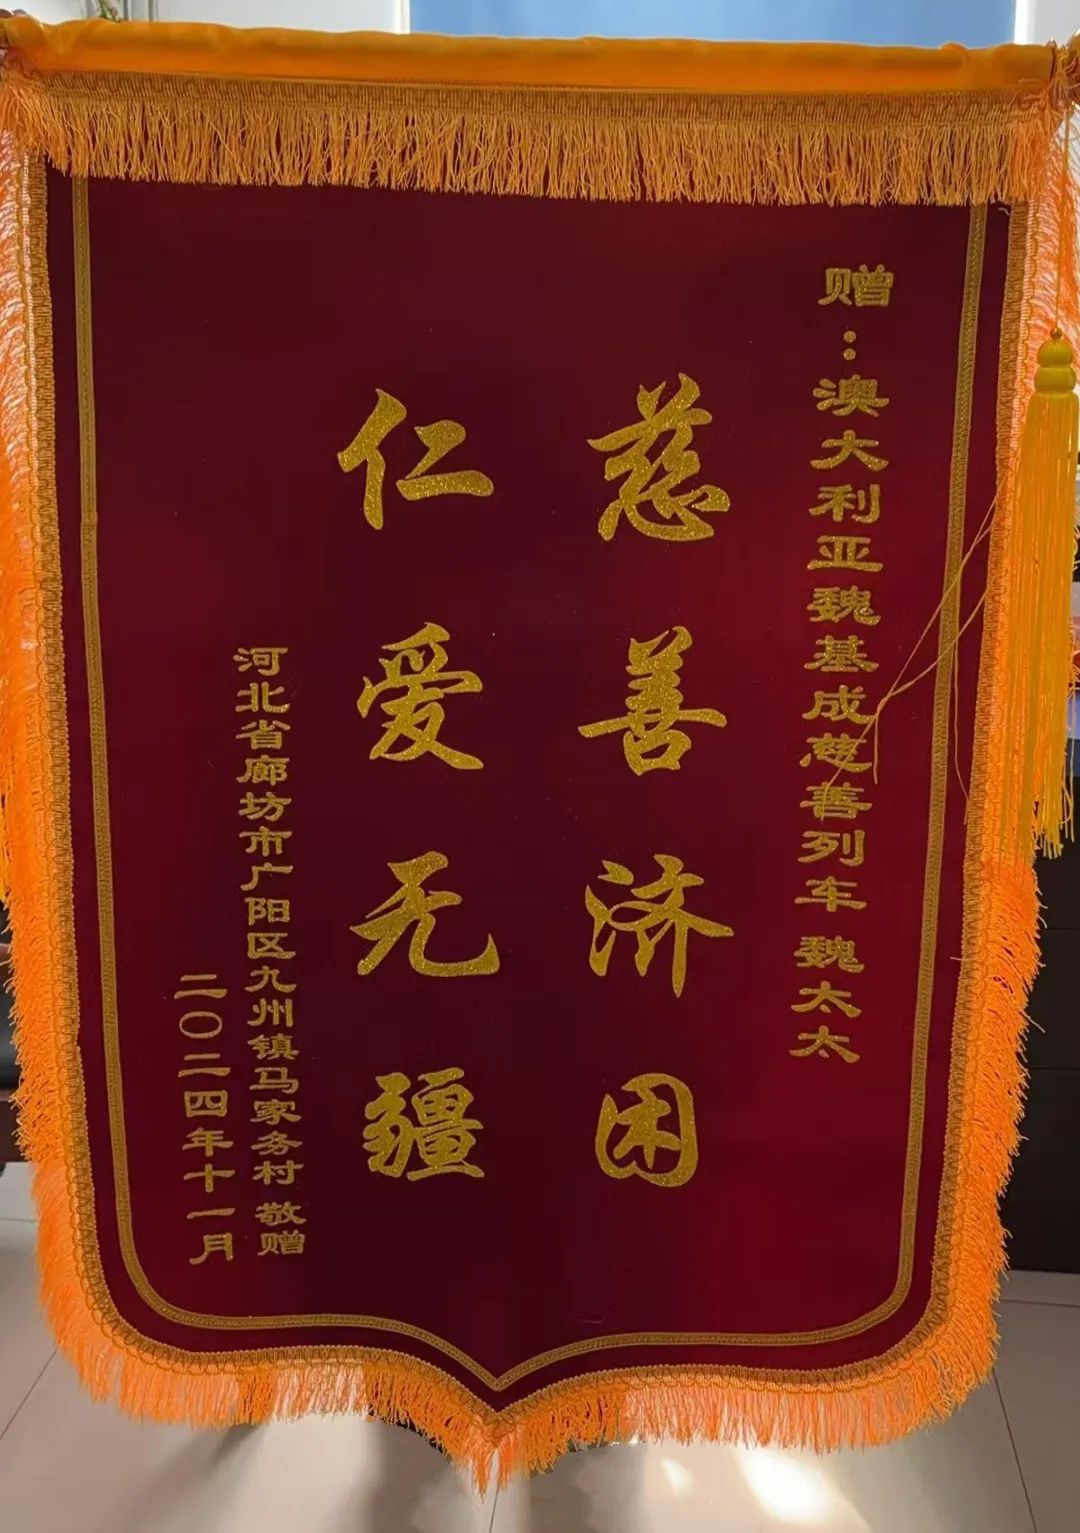 赠：澳大利亚魏基成慈善列车 魏太太
慈善济困
仁爱无疆
河北省廊坊市广阳区九州镇马家务村 敬赠
二〇二四年十一月